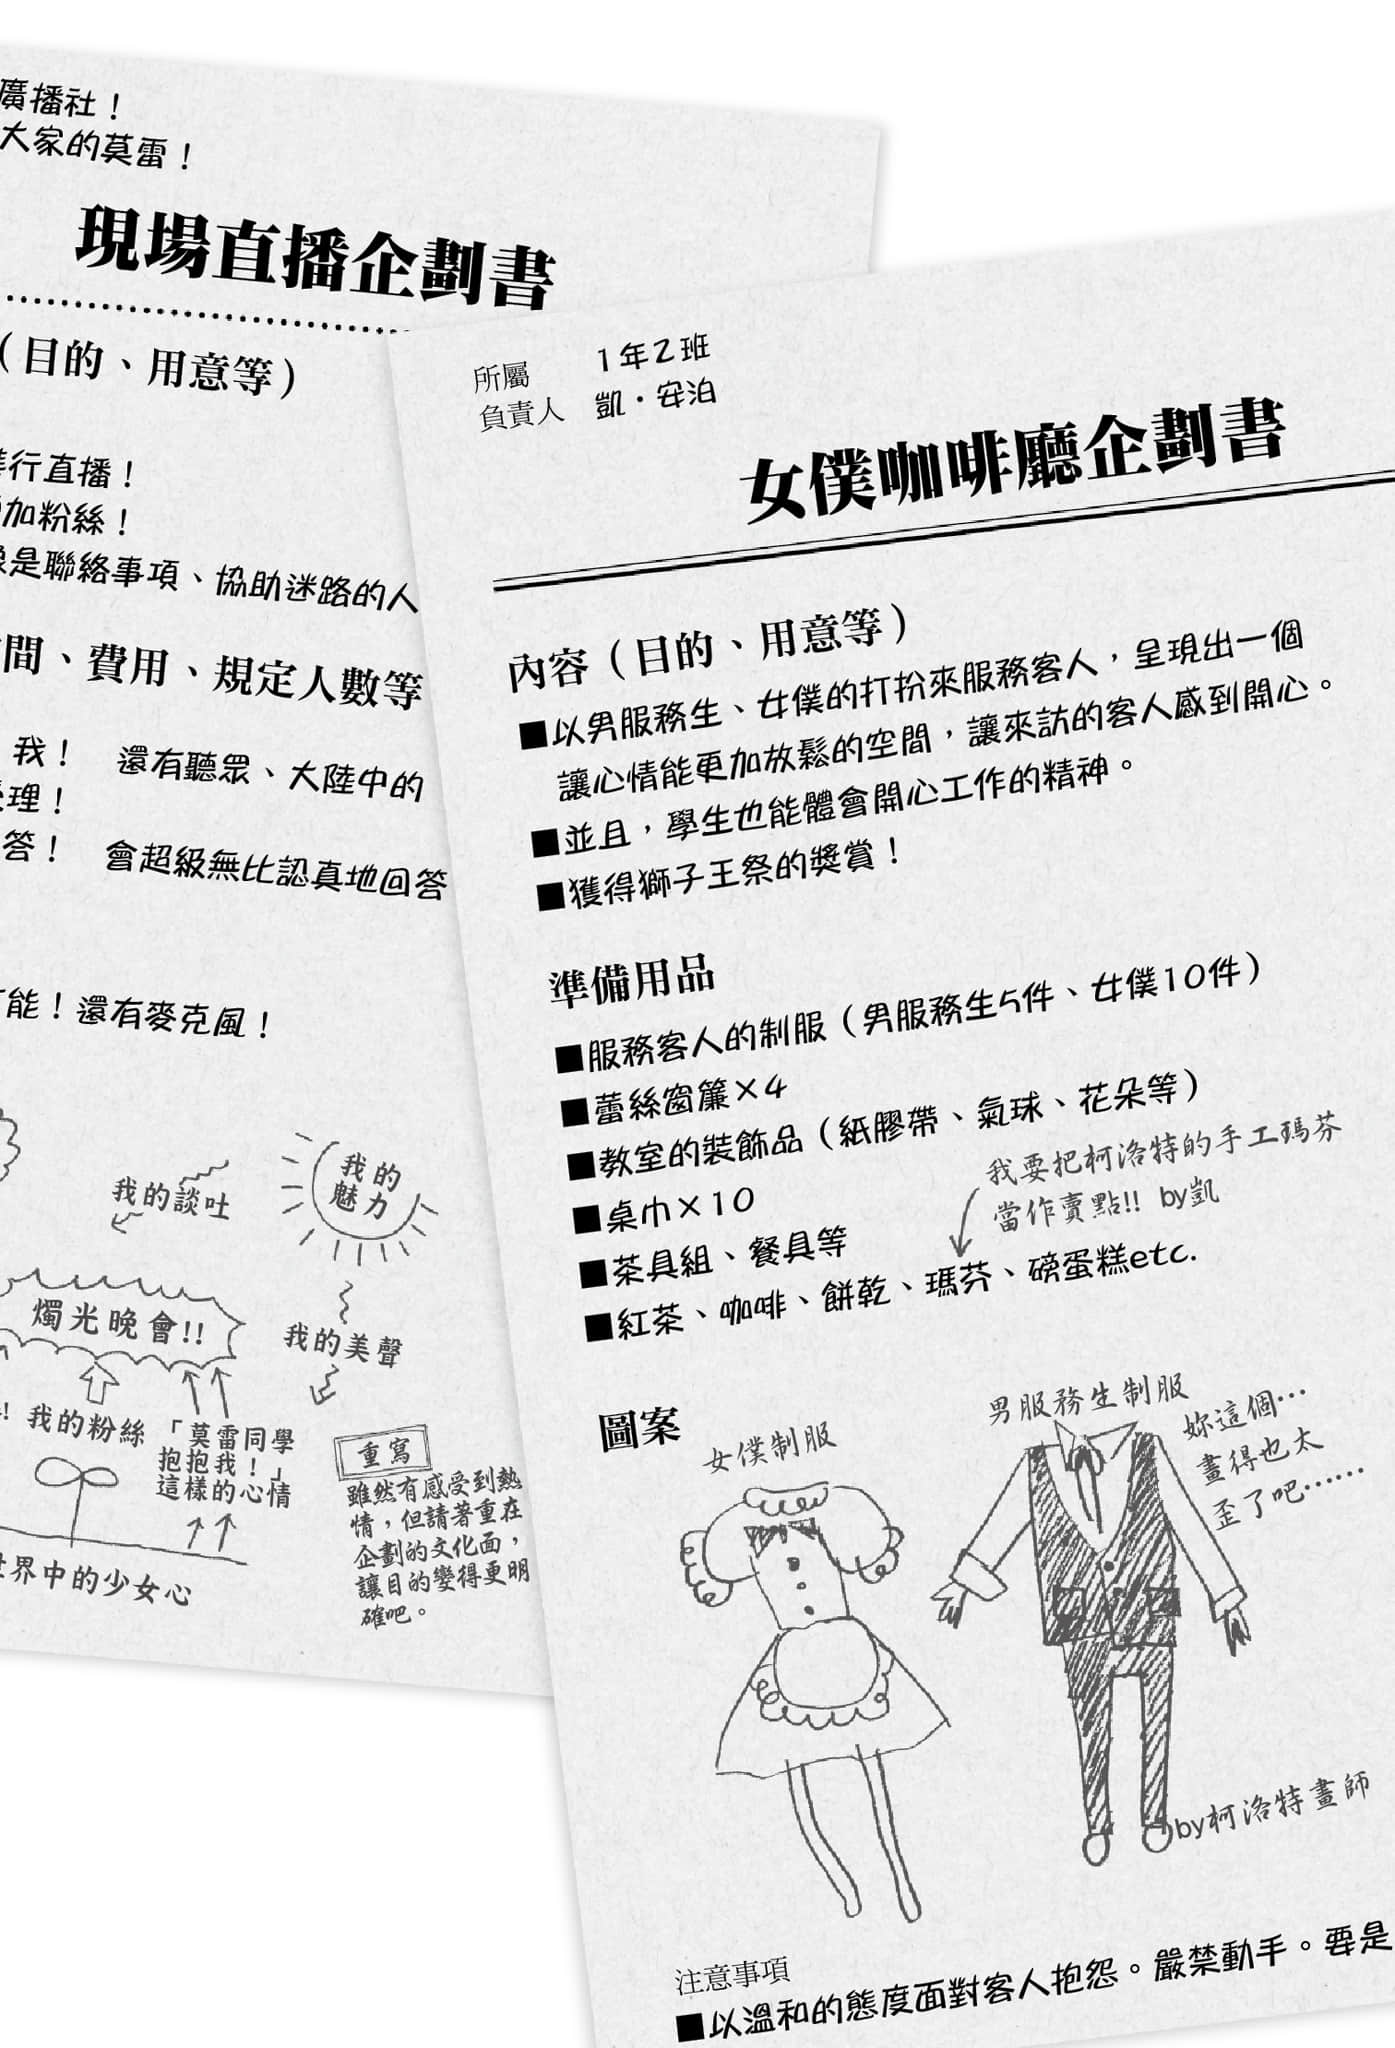 廣播社！
大家的莫雷！
現場直播企劃書
（目的、用意等）
行直播！
加粉絲！
是聯絡事項、協助迷路的人
間、費用、規定人數等
我！　還有聽眾、大陸中的
理！
答！　會超級無比認真地回答
能！還有麥克風！
我的談吐
我的
魅力
燭光晚會!!
我的美聲
! 我的粉絲
「莫雷同學
抱抱我！」
這樣的心情
世界中的少女心
重寫
雖然有感受到熱
情，但請著重在
企劃的文化面，
讓目的變得更明
確吧。
所屬　1年2班
負責人　凱・安泊
女僕咖啡廳企劃書
內容（目的、用意等）
■以男服務生、女僕的打扮來服務客人，呈現出一個
讓心情能更加放鬆的空間，讓來訪的客人感到開心。
■並且，學生也能體會開心工作的精神。
■獲得獅子王祭的獎賞！
準備用品
■服務客人的制服（男服務生5件、女僕10件）
■蕾絲窗簾×4
■教室的裝飾品（紙膠帶、氣球、花朵等）
■桌巾×10
■茶具組、餐具等
我要把柯洛特的手工瑪芬
當作賣點!! by凱
■紅茶、咖啡、餅乾、瑪芬、磅蛋糕etc.
圖案
女僕制服
男服務生制服
妳這個…
畫得也太
歪了吧……
by柯洛特畫師
注意事項
■以溫和的態度面對客人抱怨。嚴禁動手。要是